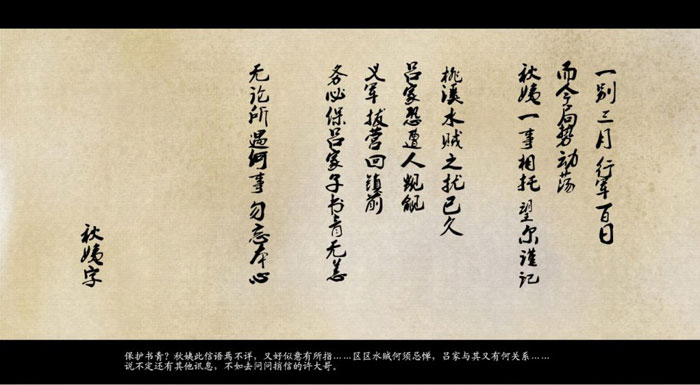 一别三月 行军百日
而今局势动荡
秋姨一事相托 望尔谨记
桃溪水贼之扰已久
吕家恐遭人觊觎
义军拔营回镇前
务必保吕家子书青无恙
无论所遇何事 勿忘本心
秋姨字
保护书青？秋姨此信语焉不详，又好似意有所指……区区水贼何须忌惮，吕家与其又有何关系……
说不定还有其他讯息，不如去问问捎信的许大哥。